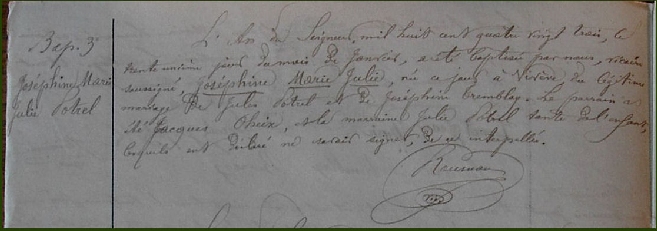 Bap. 3
Joséphine Marie
Julie Potrel
L'An du Seigneur, mil huit cent quatre vingt trois, le
trente unième jour du mois de Janvier, a été baptisée par nous, vicaire
soussigné Joséphine Marie Julie, née ce jour à du légitime
mariage de Jules Potrel et de Joséphine Tremblay. Le parrain a
été Jacques et la marraine Julie Potrel tante de l'enfant,
lesquels ont déclaré ne savoir signer, de ce interpellés.